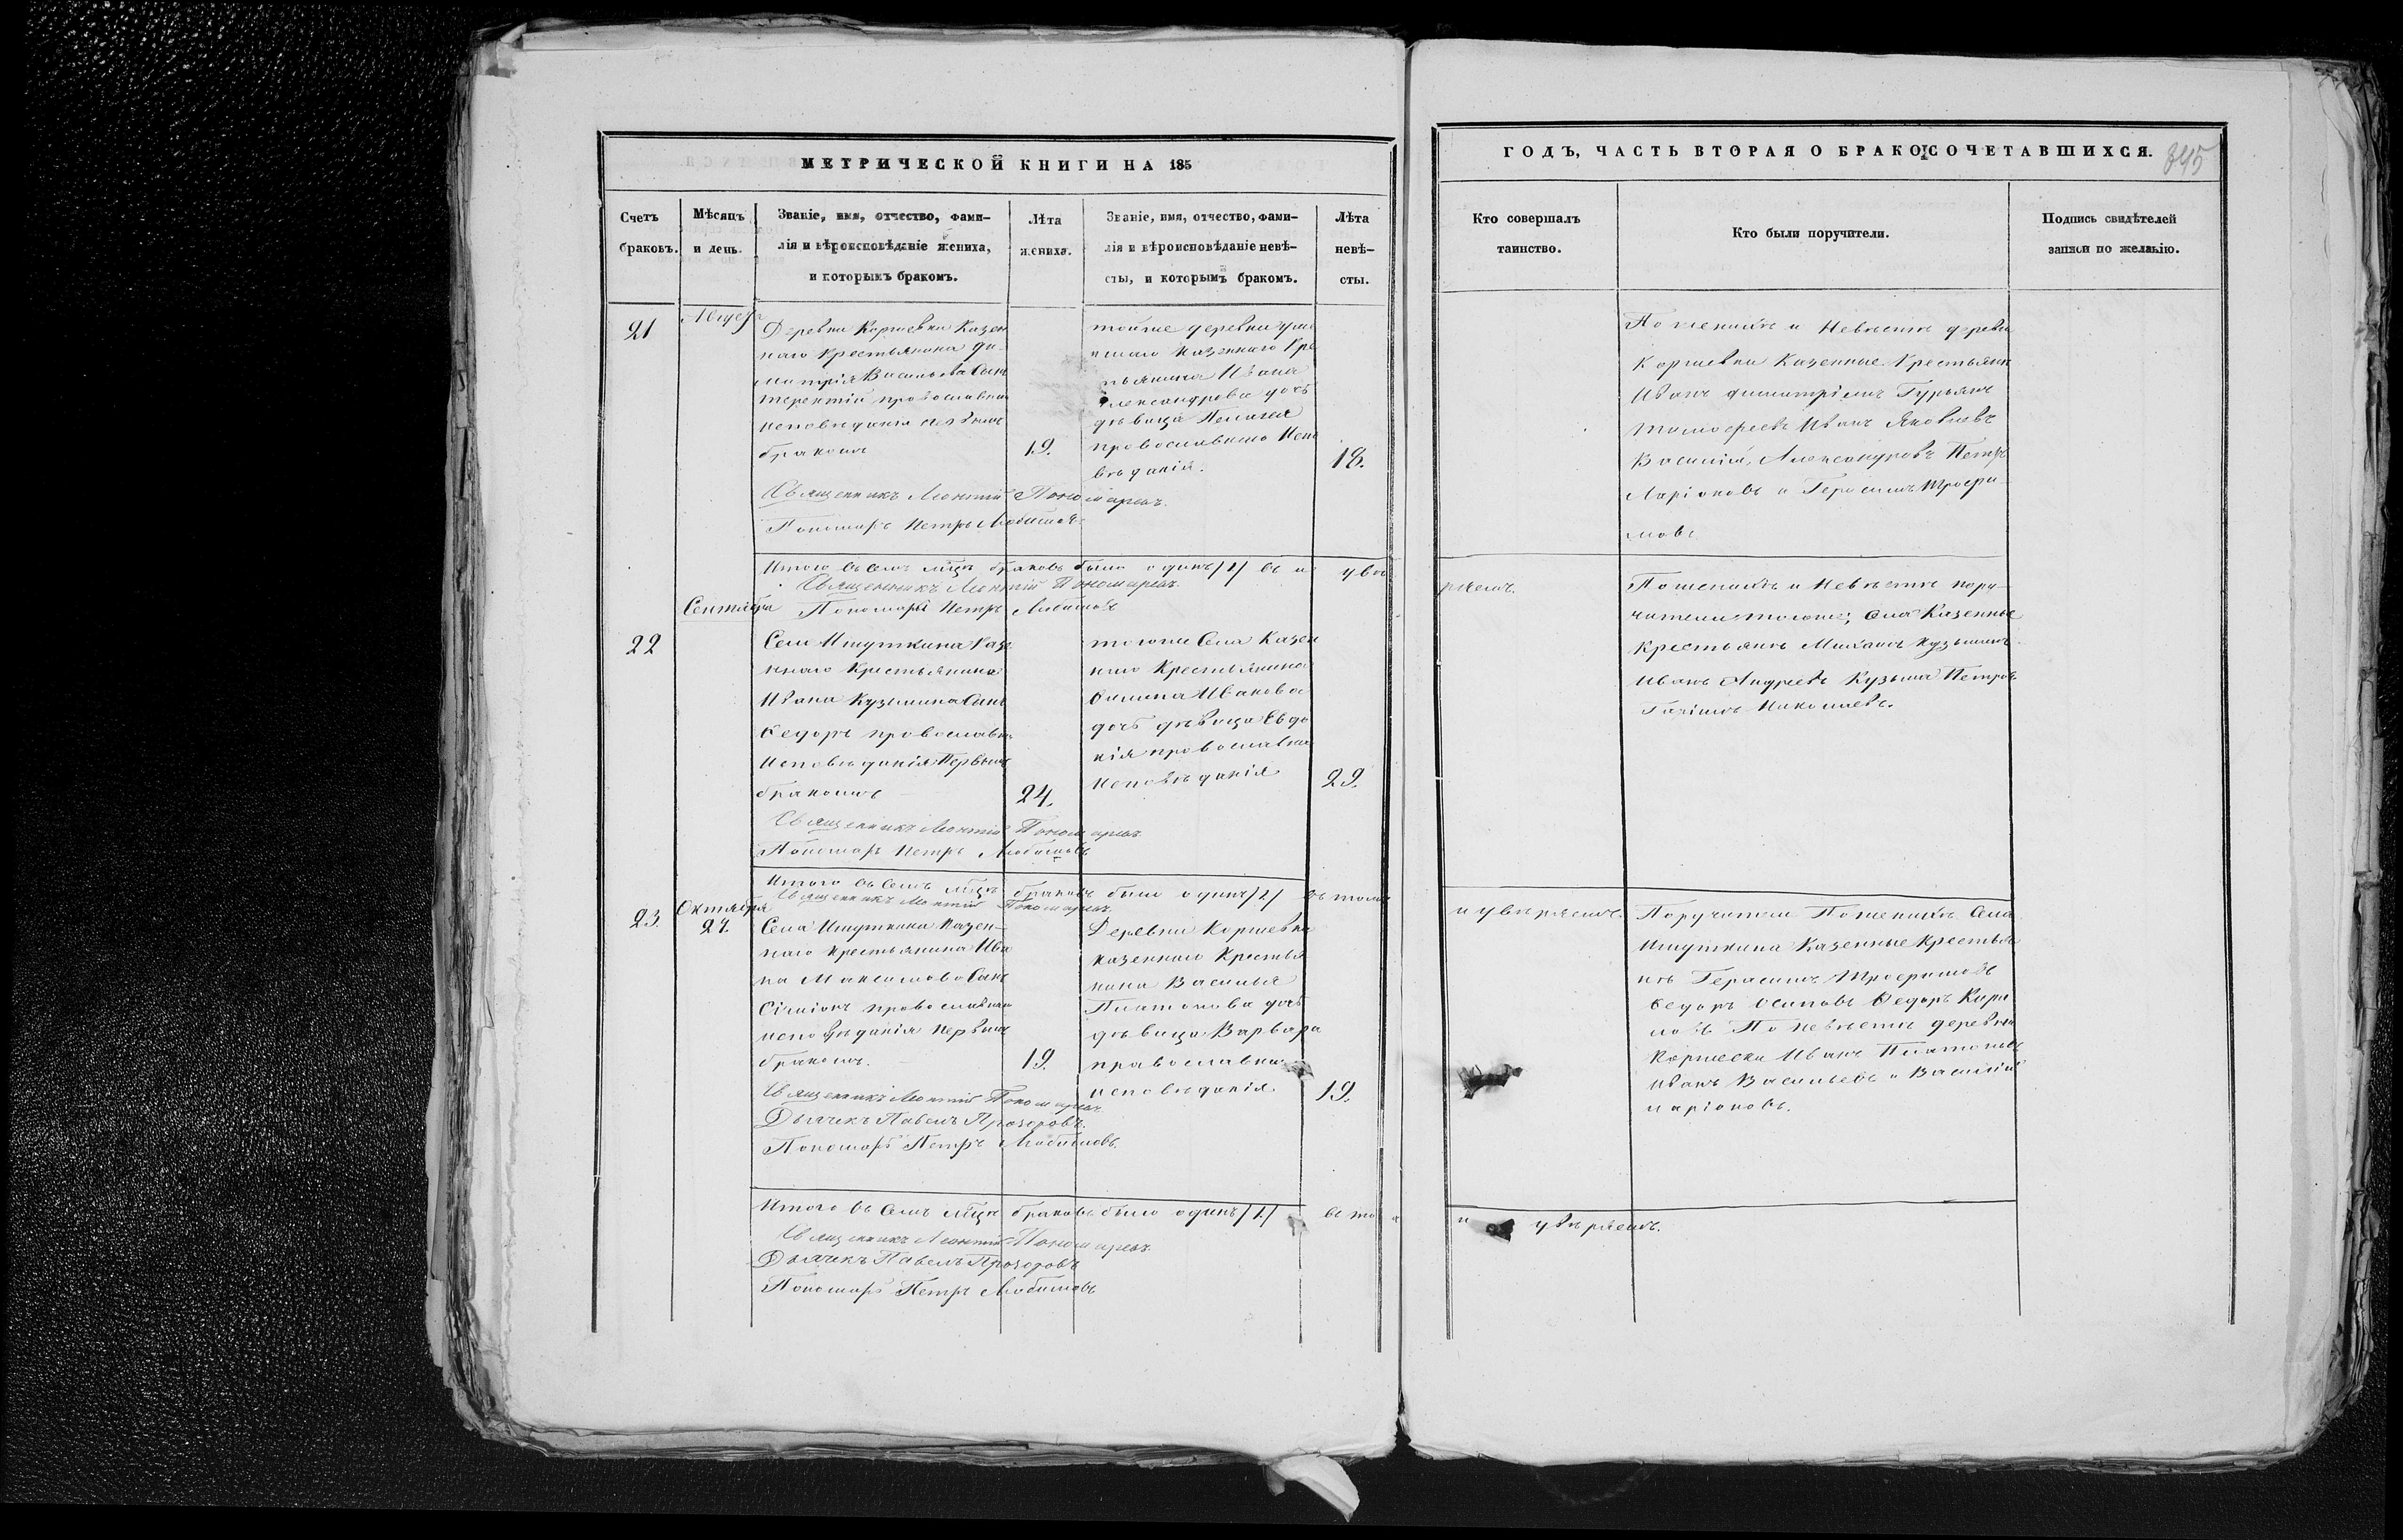 МЕТРИЧЕСКОЙ КНИГИ НА 185
Счетъ браковъ.
Мѣсяцъ и день.
Званіе, имя, отчество, фами-
лія и вѣроисповѣданіе жениха,
и которымъ бракомъ.
Лѣта
жениха.
Званіе, имя, отчество, фами-
лія и вѣроисповѣданіе невѣ-
сты, и которымъ бракомъ.
Лѣта
невѣ-
сты.
21
Деревни Коршевки Казен
наго Крестьянина Ди-
митрія Васильева Сынъ
Терентій православнаго
исповѣданія первымъ
бракомъ
19.
тойже деревни уме
ршаго Казеннаго Кре
тьянина Ивана
Александрова дочь
дѣвица Пелагея
православнаго Испо
вѣданія.
18.
Священникъ Леонтій Пономаревъ.
Пономарь Петръ Любимовъ
Итого въ семъ мѣсяцѣ браковъ было одинъ /1/ въ увѣ
Священникъ Леонтій Пономаревъ
Сентября Пономарь Петръ Любимовъ
22
Села Ишуткина Казе
ннаго Крестьянина
Ивана Кузьмина Сынъ
Ѳедоръ православна
Исповѣданія Первымъ
бракомъ
24.
тогоже Села Казен
наго Крестьянина
Иванова
дочь дѣвица Евдо
кія православна
исповѣданія
29.
Священникъ Леонтій Пономаревъ
Пономарь Петръ Любимовъ
Итого въ семъ мѣсяцѣ браковъ было одинъ /1/ въ томъ
Священникъ Леонтій Пономаревъ.
Октября
23. 27.
Села Ишуткина Казен-
наго Крестьянина Ива
на Максимова Сынъ
Сѵміонъ православнаго
исповѣданія первымъ
бракомъ.
19.
Деревни Коршевки
казеннаго Крестья
нина Василья
Платонова дочь
дѣвица Варвара
православнаго
исповѣданія.
19.
Священникъ Леонтій Пономаревъ
Дьячекъ Павелъ Прозоровъ.
Пономарь Петръ Любимовъ.
Итого въ семъ мѣсяцѣ браковъ было одинъ /1/ въ то
Священникъ Леонтій Пономаревъ
Дьячекъ Павелъ Прозоровъ
Пономарь Петръ Любимовъ
ГОДЪ, ЧАСТЬ ВТОРАЯ О БРАКОСОЧЕТАВШИХСЯ.
845
Кто совершалъ
таинство.
Кто были поручители.
Подпись свидѣтелей
записи по желанію.
По женихѣ и Невѣстѣ деревни
Коршевки Казенные Крестьяне
Иванъ Гурьянъ
Тимофеевъ Иванъ Яковлевъ
Василій Александровъ Петръ
Ларіоновъ и Герасимъ Трофи
мовъ
ряемъ.
По женихѣ и Невѣстѣ пору-
чители тогоже, Села Казенные
Крестьяне Кузьминъ
Иванъ Андреевъ Кузьма Петровъ
Николаевъ.
и увѣряемъ.
Поручители По женихѣ Села
Ишуткина Казенные Крестья
не Герасимъ Трофимовъ
Ѳедоръ Осиповъ Ѳедоръ Кири
ловъ По невѣстѣ деревни
Коршевки Иванъ Платоновъ
Иванъ Васильевъ и Василій
Ларіоновъ.
и увѣряемъ.